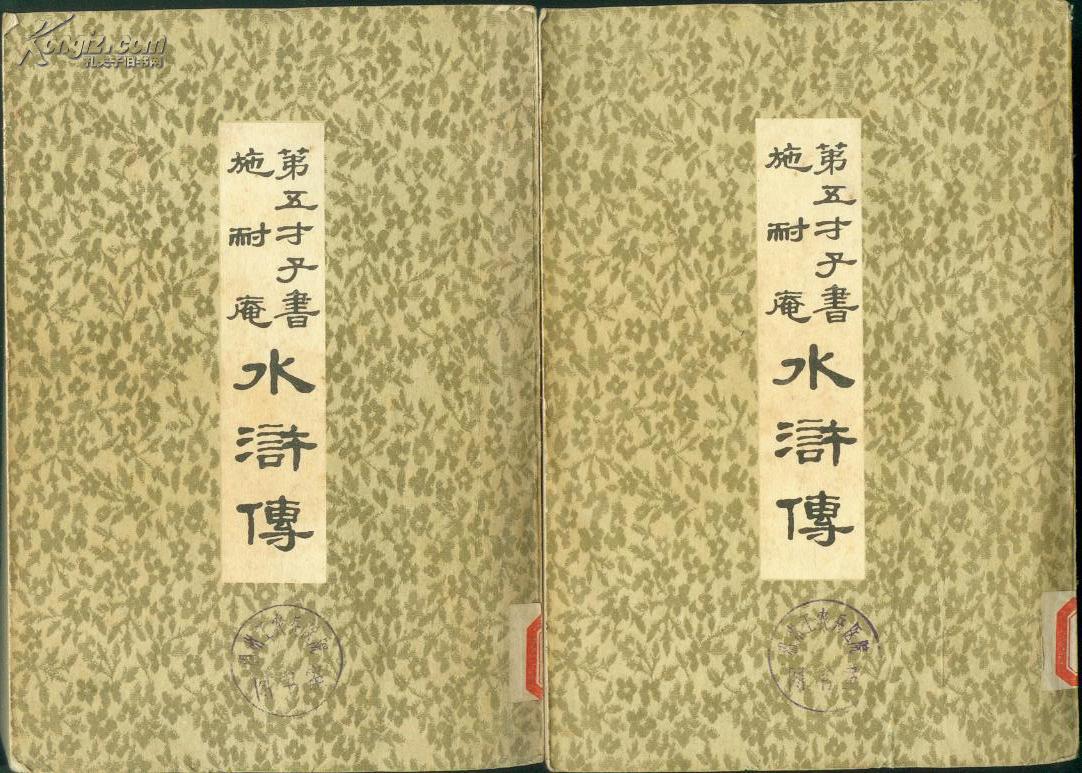 Kongfz.com
孔夫子旧书网
第五才子書
施耐庵
水滸傳
第五才子書
施耐庵
水滸傳